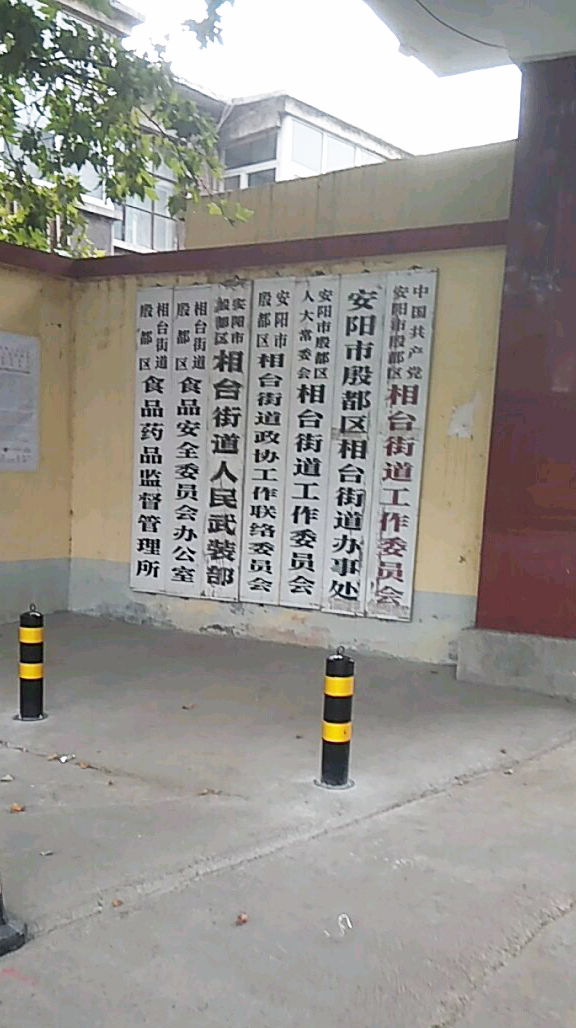 中国共产党
安阳市殷都区
相台街道工作委员会
安阳市殷都区相台街道办事处
安阳市殷都区
人大常委会
相台街道工作委员会
安阳市
殷都区
相台街道政协工作联络委员会
安阳市
殷都区
相台街道人民武装部
相台街道
殷都区
食品安全委员会办公室
相台街道
殷都区
食品药品监督管理所